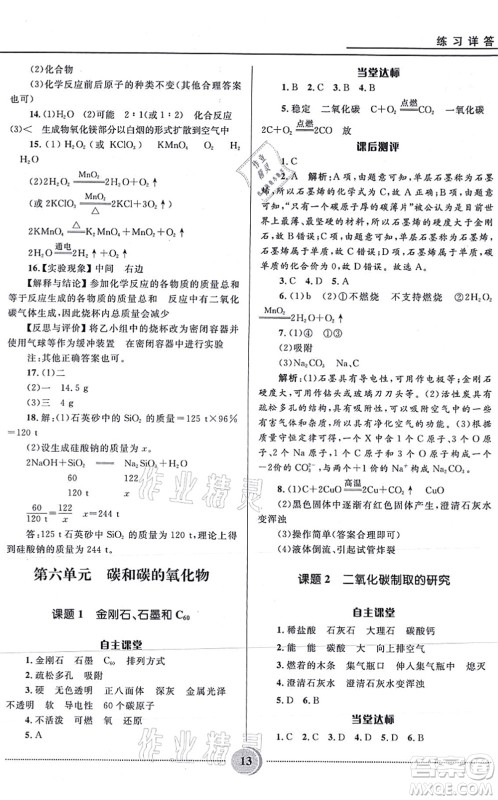 练习详答
(2)化合物
(3)化学反应前后原子的种类不变(其他合理答案也可)
14.(1)H₂O (2)可能 2∶1(或1∶2) 化合反应
(3)< 生成物氧化镁部分以白烟的形式扩散到空气中
15.(1)H₂O₂(或KClO₃) H₂O
(2)2H₂O₂ MnO₂ 2H₂O+O₂↑
(或2KClO₃ MnO₂ △ 2KCl+3O₂↑或
2KMnO₄ △ K₂MnO₄+MnO₂+O₂↑或
2H₂O 通电 2H₂↑+O₂↑)
16.【实验现象】中间 右边
【解释与结论】参加化学反应的各物质的质量总和等于反应后生成的各物质的质量总和 反应中有二氧化碳气体生成,使烧杯内物质的总质量减少
【反思与评价】将乙小组中的烧杯改为密闭容器并使用气球等作为缓冲装置 在密闭容器中进行实验
注:其他正确答案也可。
17.(1)二
(2)一 14.5 g
(3)三 4 g
18.(1)石英砂中SiO₂的质量=125 t×96%
=120 t
(2)设生成硅酸钠的质量为x。
2NaOH+SiO₂══Na₂SiO₃+H₂O
60 122
120 t x
60/120 t=122/x x=244 t
答:125 t石英砂中SiO₂的质量为120 t,理论上得到硅酸钠的质量为244 t。
第六单元 碳和碳的氧化物
课题1 金刚石、石墨和C₆₀
自主课堂
1.金刚石 石墨 C₆₀ 排列方式
2.疏松多孔 吸附
3.硬 无色透明 正八面体 深灰 金属光泽
不透明 软 导电性 60个碳原子
4.不活泼 可燃 氧 还原
5.A
当堂达标
1.B 2.D 3.C 4.B
5.稳定 二氧化碳 C+O₂ 点燃 CO₂ 一氧化碳
2C+O₂ 点燃 2CO
课后测评
1.C
2.A 解析:A项,由题意可知,单层石墨称为石墨烯,所以石墨烯的化学式为C,故A正确;B项,由题意“一个碳原子厚的碳薄片”被公认为是目前世界上最薄、最坚硬的材料,所以石墨烯的硬度大于金刚石,故B错误;C项,单层石墨称为石墨烯,石墨烯属于单质,故C错误;D项,石墨烯属于单质,单质中元素的化合价为0,故D错误。故选A。
3.C 4.D 5.A
6.(1)b (2)①不燃烧 不支持燃烧 ②2H₂O₂
MnO₂ 2H₂O+O₂↑
7.(1)导电 C
(2)吸附
(3)Na₂CO₃
解析:(1)石墨具有导电性,可用于作电极,金刚石硬度大,可用作钻头或玻璃刀头。(2)活性炭具有疏松多孔的结构,所以具有净化空气的功能。(3)根据质量守恒定律可得,一个X中含有1个C原子和3个O原子,3个O原子和1个C原子可构成一个CO₃²⁻,其需要与两个Na⁺构成Na₂CO₃。
8.(1)C+2CuO 高温 2Cu+CO₂↑
(2)绿色固体变黑后有红色固体产生,澄清石灰水变浑浊
(3)CuO
(4)液体倒流、引起试管炸裂
课题2 二氧化碳制取的研究
自主课堂
1.稀盐酸 石灰石 大理石 碳酸钙
2.能 能 碳酸 大 向上排空气
3.燃着的木条 集气瓶口 伸入集气瓶中 熄灭
4.澄清石灰水变浑浊 澄清石灰水
5.D 6.B
当堂达标
1.C 2.C 3.A 4.D 5.D 6.A
13